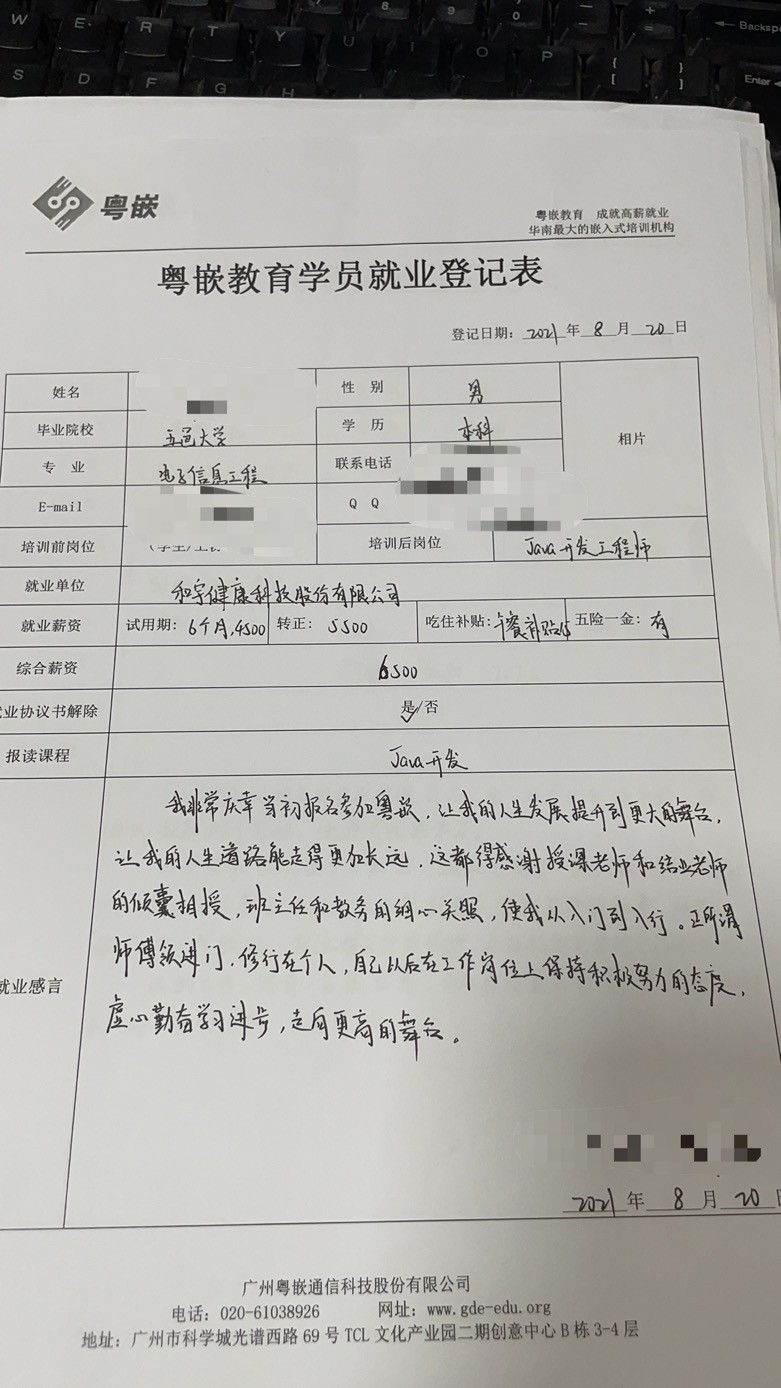 W E R T Y U I O P
S D F G H
8 9 0 - + =
← Backspa
Enter
粤嵌
粤嵌教育 成就高薪就业
华南最大的嵌入式培训机构
粤嵌教育学员就业登记表
登记日期: 2021 年 8 月 20 日
姓名 性 别 男
毕业院校 五邑大学 学 历 本科 相片
专 业 电子信息工程 联系电话
E-mail Q Q
培训前岗位 培训后岗位 Java开发工程师
就业单位 和宇健康科技股份有限公司
就业薪资 试用期: 6个月,4500 转正: 5500 吃住补贴: 午餐补贴15 五险一金: 有
综合薪资 6500
业协议书解除 是/否
报读课程 Java开发
我非常庆幸当初报名参加粤嵌,让我的人生发展提升到更大的舞台,
让我的人生道路能走得更加长远,这都得感谢授课老师和结业老师
的倾囊相授,班主任和教务的细心关照,使我从入门到入行。正所谓
师傅领进门,修行在个人,自己以后在工作岗位上保持积极努力的态度,
就业感言
虚心勤奋学习进步,走向更高的舞台。
2021 年 8 月 20 日
广州粤嵌通信科技股份有限公司
电话: 020-61038926 网址: www.gde-edu.org
地址: 广州市科学城光谱西路 69 号 TCL 文化产业园二期创意中心 B 栋 3-4 层